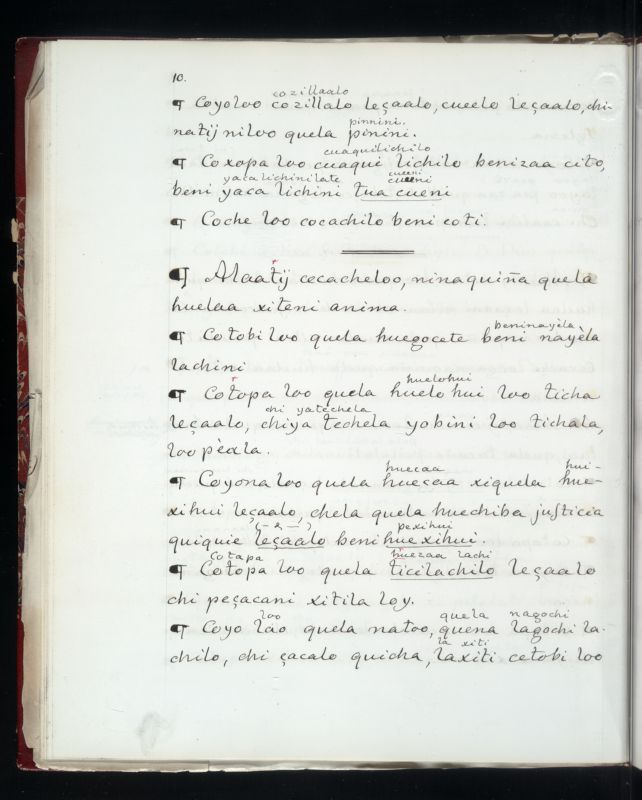 10.
cozillaalo
¶ Coyoloo cozillalo leçaalo, cueelo leçaalo, chi-
pinnini.
natij niloo quela pinini.
cuaquilichilo
¶ Coxopa loo cuaque lichilo benizaa cito,
yaca lichinilate cueeni
beni yaca lichini tua cueni
¶ Coche loo cocachilo beni coti.
¶ Alaatij cecacheloo, ninaquiña quela
huelaa xiteni anima.
beninayèla
¶ Cotobi loo quela huegocete beni nayèla
lachini
huelohui
¶ Cotopa loo quela huelo hui loo ticha
chi yatechela
leçaalo, chiya techela yobini loo tichala,
loo pèala.
huecaa hui-
¶ Coyona loo quela hueçaa xiquela hue-
xihui leçaalo, chela quela huechiba justicia
(– 2 –) pexihui
quiquie leçaalo beni huexihui.
Cotapa huezaa lachi
¶ Cotopa loo quela ticilachilo leçaalo
chi peçacani xitila loy.
loo quela nagochi
¶ Coyo lao quela natoo, quena lagochi la-
la xiti
chilo, chi çacalo quicha, laxiti cetobi loo